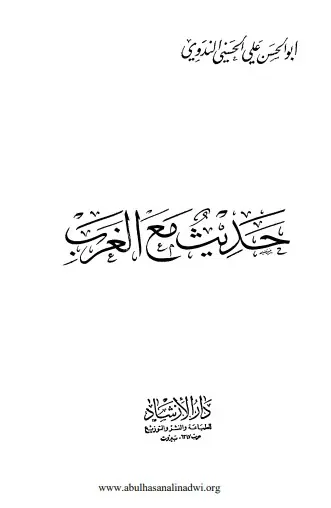 ابو الحسن علي الحسني الندوي
حديث مع الغرب
دار الإرشاد
للطباعة والنشر والتوزيع
بيروت
www.abulhasanalinadwi.org